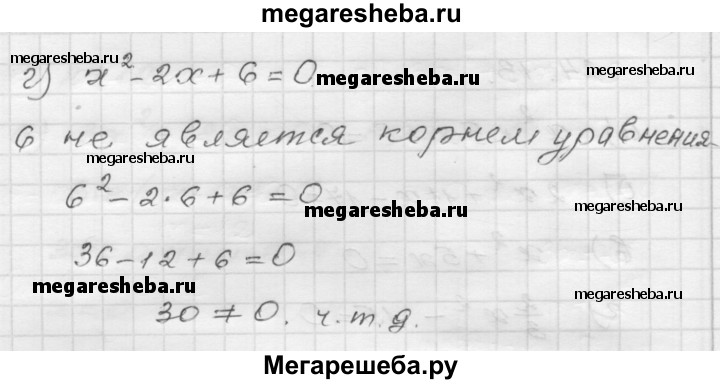 megaresheba.ru
megaresheba.ru
г) x² - 2x + 6 = 0
megaresheba.ru
6 не является корнем уравнения
megaresheba.ru
6² - 2·6 + 6 = 0
megaresheba.ru
36 - 12 + 6 = 0
megaresheba.ru
megaresheba.ru
30 ≠ 0. ч.т.д.
Мегарешеба.ру